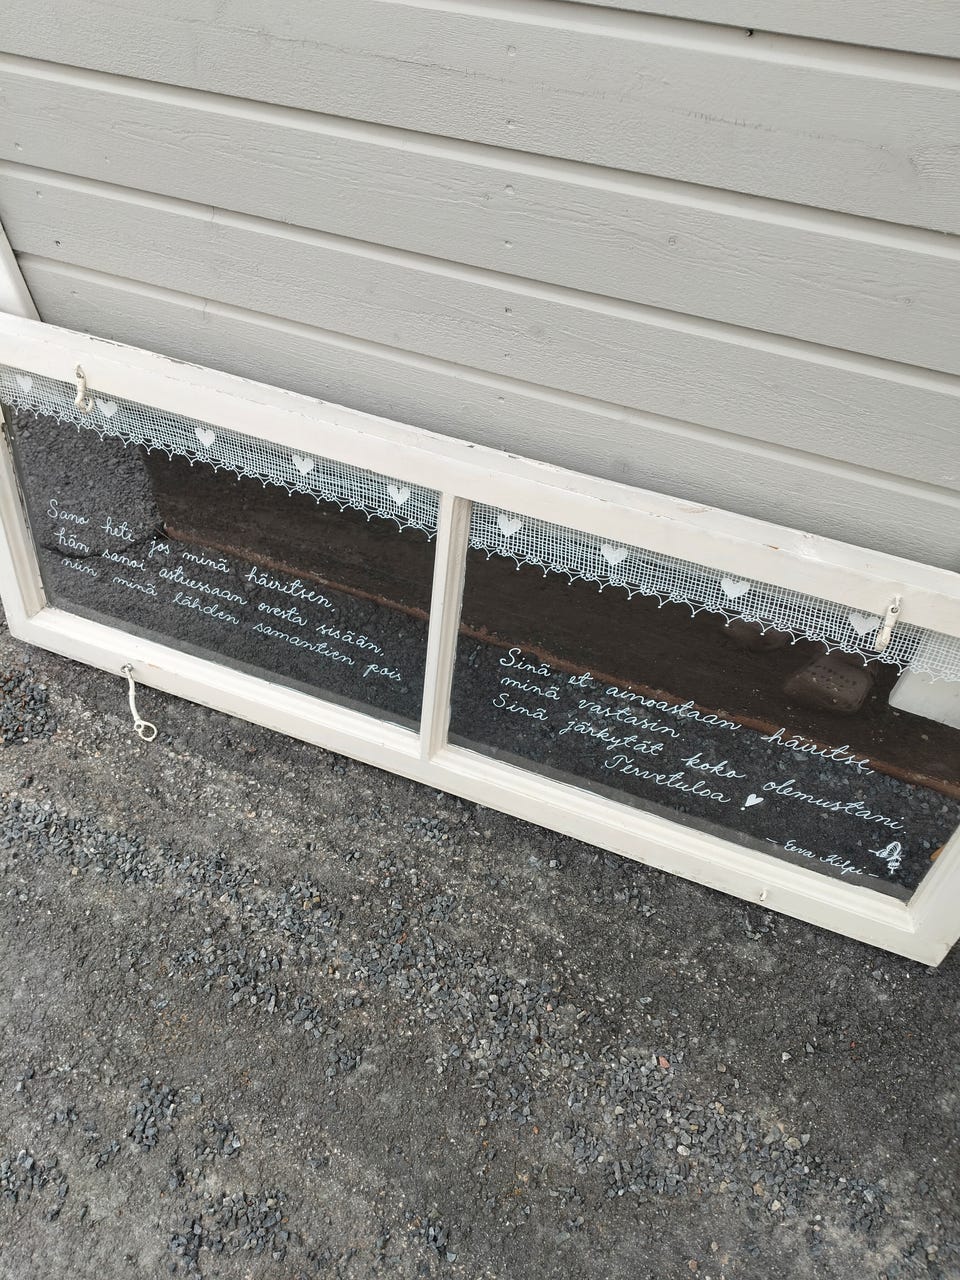 Sano heti jos minä häiritsen,
hän sanoi astuessaan ovesta sisään,
niin minä lähden samantien pois
Sinä et ainoastaan häiritse,
minä vastasin
Sinä järkytät koko olemustani.
Tervetuloa
- Eeva Kilpi -